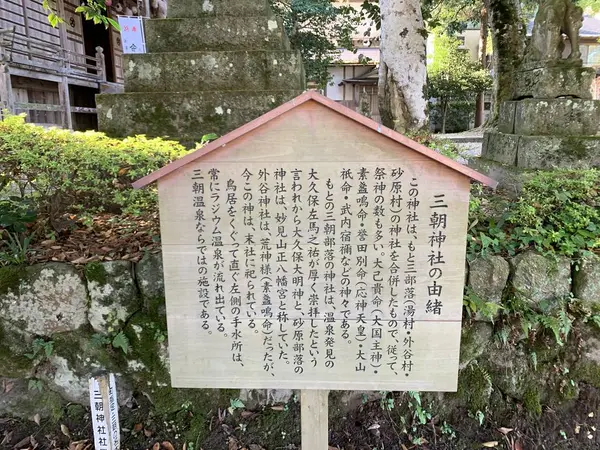 三朝神社の由緒
この神社は、もと三部落（湯村・外谷村・
砂原村）の神社を合併したもので、従って、
祭神の数も多い。大己貴命（大国主神）・
素盞鳴命・誉田別命（応神天皇）・大山
祇命・武内宿禰などの神々である。
もとの三朝部落の神社は、温泉発見の
大久保左馬之祐が厚く崇拝したという
言われから大久保大明神と、砂原部落の
神社は、妙見山正八幡宮と称していた。
外谷神社は、荒神様（素盞鳴命）だったが、
今この神は、末社に祀られている。
鳥居をくぐって直ぐ左側の手水所は、
常にラジウム温泉が流れ出ている。
三朝温泉ならではの施設である。
三朝神社社